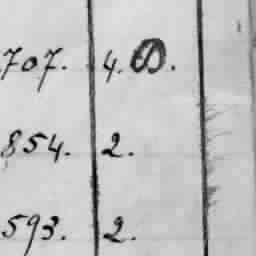 707. 4.
854. 2.
593. 2.